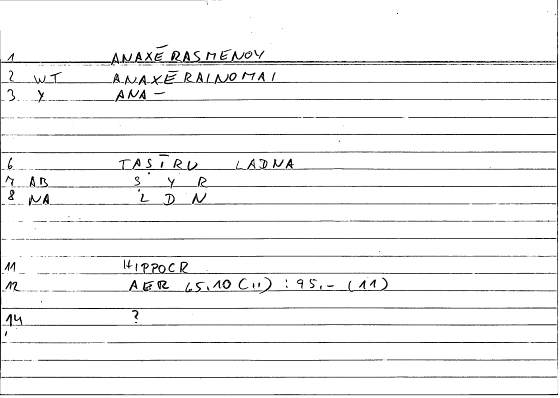 1 ANAXĒRASMENOY
2 WT ANAXĒRAINOMAI
3 Y ANA-
6 TAṢĪRU LADNA
7 AB Ṣ Y R
8 NA L D N
11 HIPPOCR
12 AER 65.10 (11) : 95.- (11)
14 ?